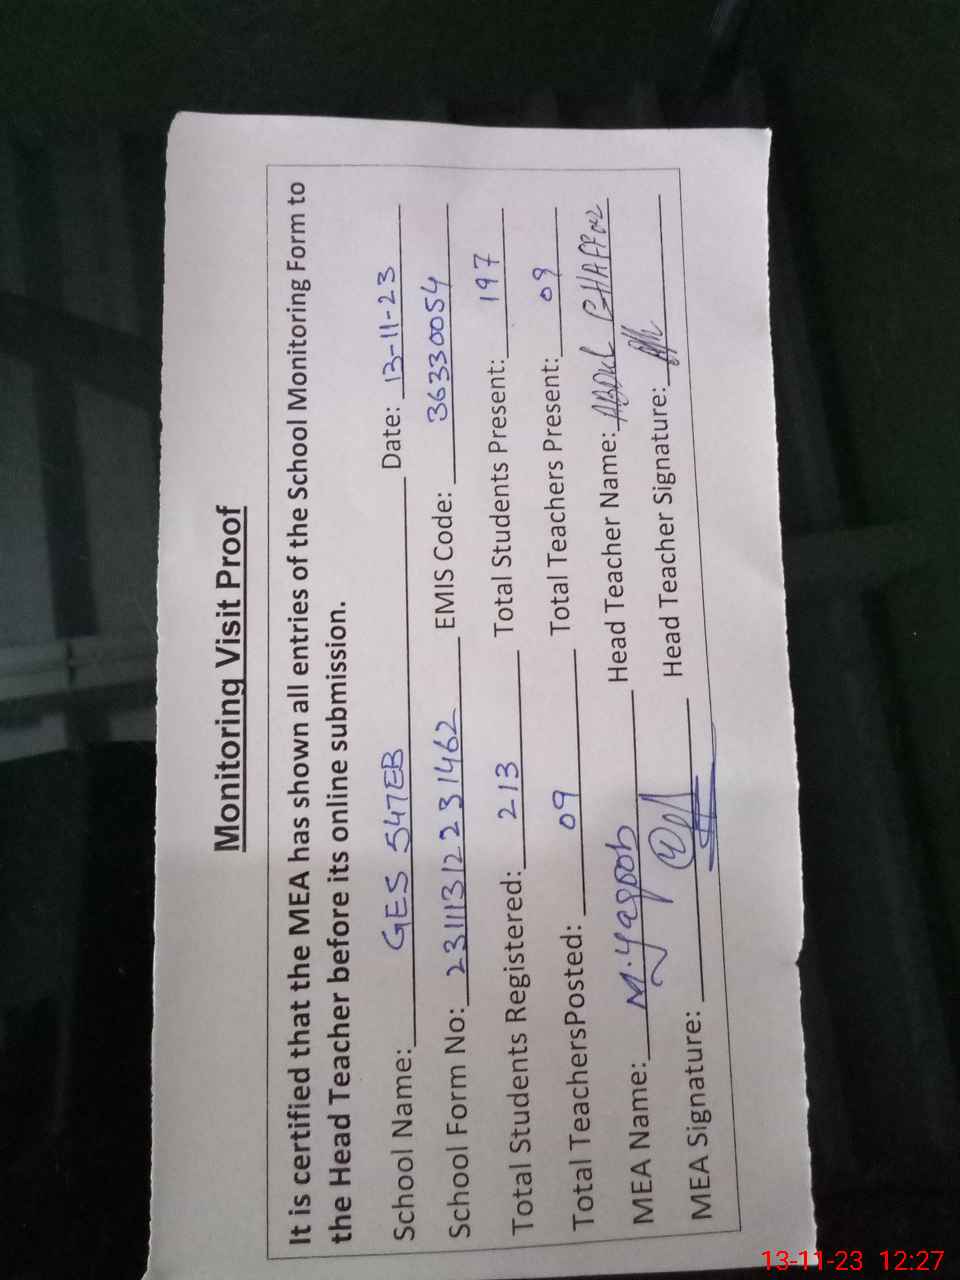 Monitoring Visit Proof
It is certified that the MEA has shown all entries of the School Monitoring Form to
the Head Teacher before its online submission.
School Name: GES 547EB Date: 13-11-23
School Form No: 23111312231462 EMIS Code: 36330054
Total Students Registered: 213 Total Students Present: 197
Total TeachersPosted: 09 Total Teachers Present: 09
MEA Name: M.Yaqoob Head Teacher Name: ABDUL GHAFFOR
MEA Signature: Head Teacher Signature:
13-11-23 12:27